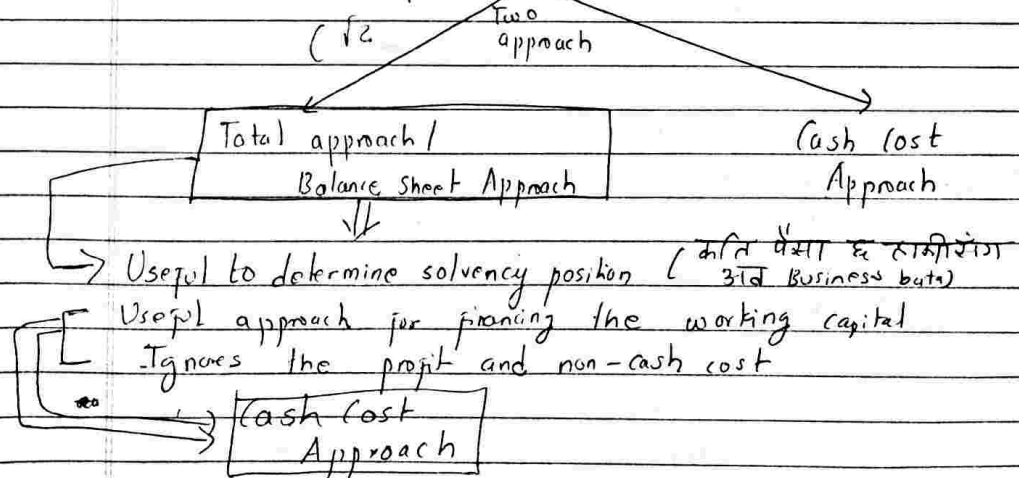 Two
approach
Total approach /
Balance Sheet Approach
Cash Cost
Approach
Useful to determine solvency position ( कति पैसा छ हामीसंग
अब Business bata)
Useful approach for financing the working capital
- Ignores the profit and non-cash cost
Cash Cost
Approach